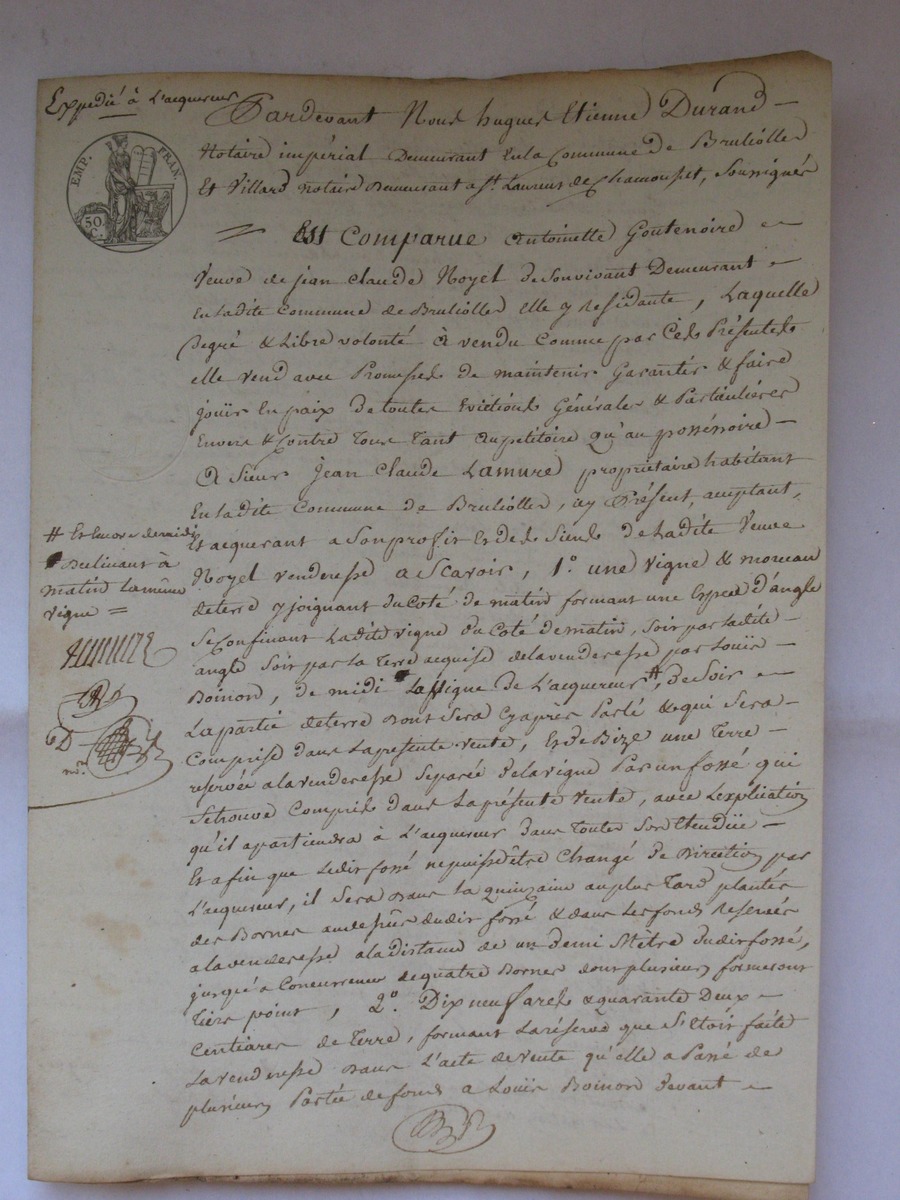 Expedié à L'acquereur
Pardevant Nous hugues Etienne Durand
EMP. FRAN.
50 C.
Notaire impérial Demeurant En la Commune de Brulioller
Et Villard notaire Demeurant a st. Laurens de Chamousset, Soussignés
Est Comparue Antoinette Goutenoire
Veuve de jean Claude Noyel de Sonvivant Demeurant
En ladite Commune de Brulioller elle y Residante, Laquelle
Degré & Libre volonté à vendu Comme par Cés Présentes
elle vend avec Promesses de maintenir Garantir & faire
jouir En paix de toutes Evictions Générales & Particulières
Envers & Contre Tous Tant au pétitoire qu'au posséssoire
A Sieur jean Claude Lamure propriétaire habitant
En ladite Commune de Brulioller, icy Présent, acceptant,
Et acquerant a Son profit Et des Siens de Ladite Veuve
Noyel venderesse a Scavoir, 1º. une vigne & morceau
de terre y joignant du Coté de matin formant une Espece d'angle
Se Confinant Ladite vigne du Coté de matin, Soit par Ladite
angle Soit par la Terre acquise de la venderesse par Louis
Boinon, de midi La Vigne de L'acquereur #, de Soir
La partie de terre dont Sera Cy après Parlé & qui Sera
Comprise dans La presente vente, Et de Bize une Terre
reservée a la venderesse Separée de la vigne Par un fossé qui
Se trouve Compris dans La présente Vente, avec L'explication
qu'il apartiendra à L'acquereur Dans Toute Son Etendüe
Et afin que Ledit fossé ne puisse être Changé de Direction par
L'acquereur, il Sera dans la quinzaine au plus Tard plantés
des Bornes au dessus dudit fossé & dans Les fonds Reservés
a la venderesse a la distance de un demi Mètre dudit fossé,
jusqu'a Concurrence de quatre Bornes dont plusieurs formeront
Tiers point, 2º. Dix neuf ares & quarante Deux
Centiares de Terre, formant La réserve que S'Etoit faite
La venderesse dans L'acte de vente qu'elle a Passé de
plusieurs Partie de fonds a Louis Boinon Devant
# Et Encore de midi
Declinant à
matin La même
vigne =